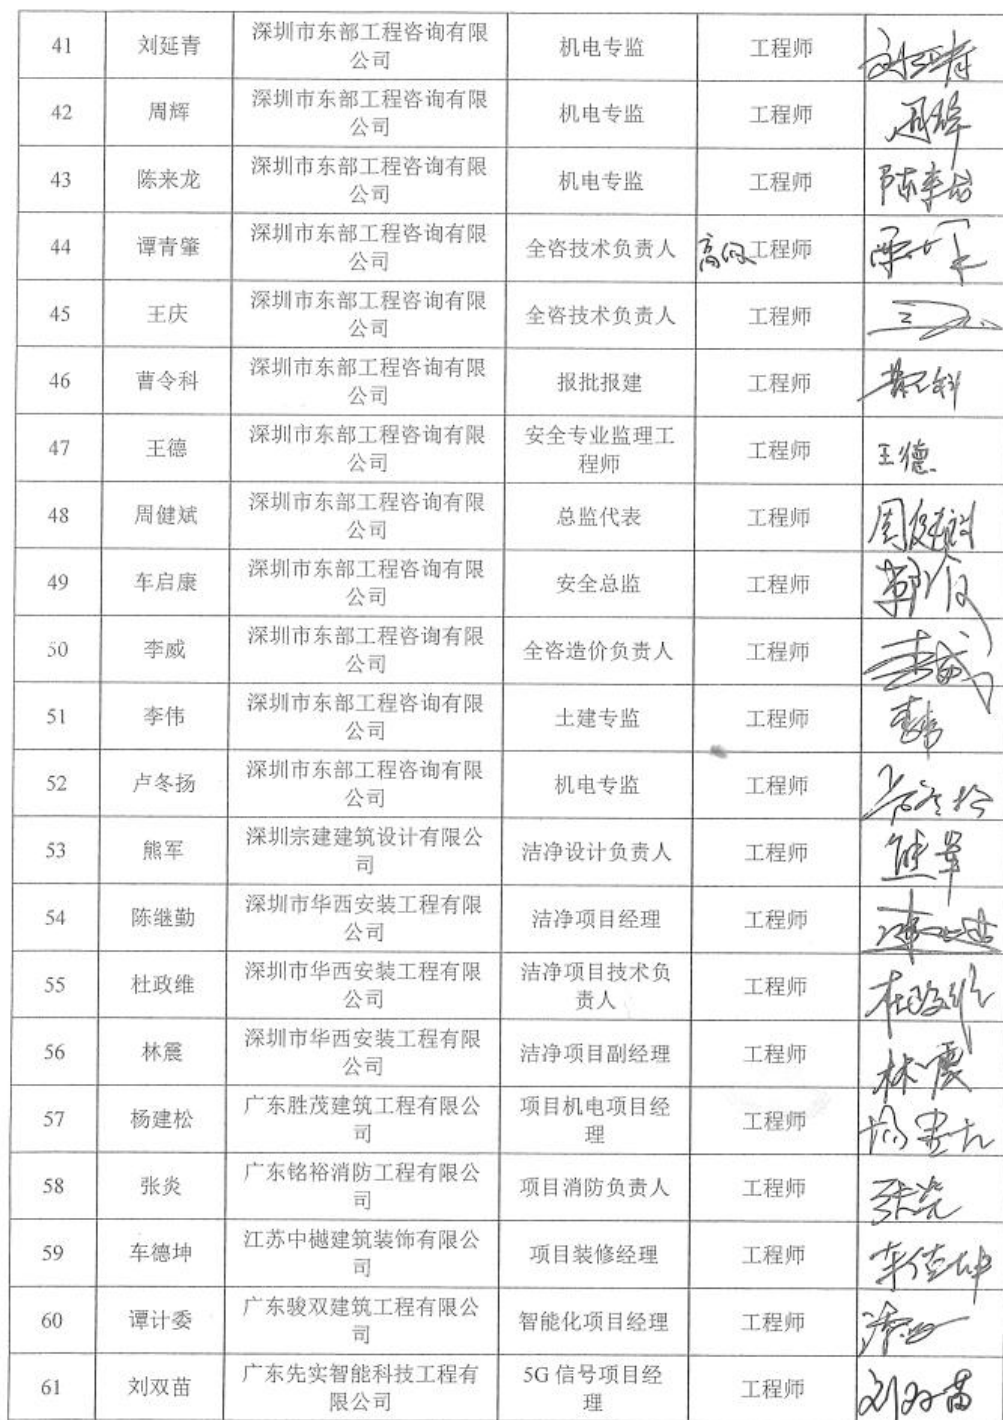 41 刘延青 深圳市东部工程咨询有限公司 机电专监 工程师 刘延青
42 周辉 深圳市东部工程咨询有限公司 机电专监 工程师 周辉
43 陈来龙 深圳市东部工程咨询有限公司 机电专监 工程师 陈来龙
44 谭青肇 深圳市东部工程咨询有限公司 全咨技术负责人 高级工程师
45 王庆 深圳市东部工程咨询有限公司 全咨技术负责人 工程师
46 曹令科 深圳市东部工程咨询有限公司 报批报建 工程师
47 王德 深圳市东部工程咨询有限公司 安全专业监理工程师 工程师 王德
48 周健斌 深圳市东部工程咨询有限公司 总监代表 工程师 周健斌
49 车启康 深圳市东部工程咨询有限公司 安全总监 工程师
50 李威 深圳市东部工程咨询有限公司 全咨造价负责人 工程师 李威
51 李伟 深圳市东部工程咨询有限公司 土建专监 工程师 李伟
52 卢冬扬 深圳市东部工程咨询有限公司 机电专监 工程师
53 熊军 深圳宗建建筑设计有限公司 洁净设计负责人 工程师 熊军
54 陈继勤 深圳市华西安装工程有限公司 洁净项目经理 工程师
55 杜政维 深圳市华西安装工程有限公司 洁净项目技术负责人 工程师 杜政维
56 林震 深圳市华西安装工程有限公司 洁净项目副经理 工程师 林震
57 杨建松 广东胜茂建筑工程有限公司 项目机电项目经理 工程师 杨建松
58 张炎 广东铭裕消防工程有限公司 项目消防负责人 工程师 张炎
59 车德坤 江苏中樾建筑装饰有限公司 项目装修经理 工程师 车德坤
60 谭计委 广东骏双建筑工程有限公司 智能化项目经理 工程师
61 刘双苗 广东先实智能科技工程有限公司 5G 信号项目经理 工程师 刘双苗